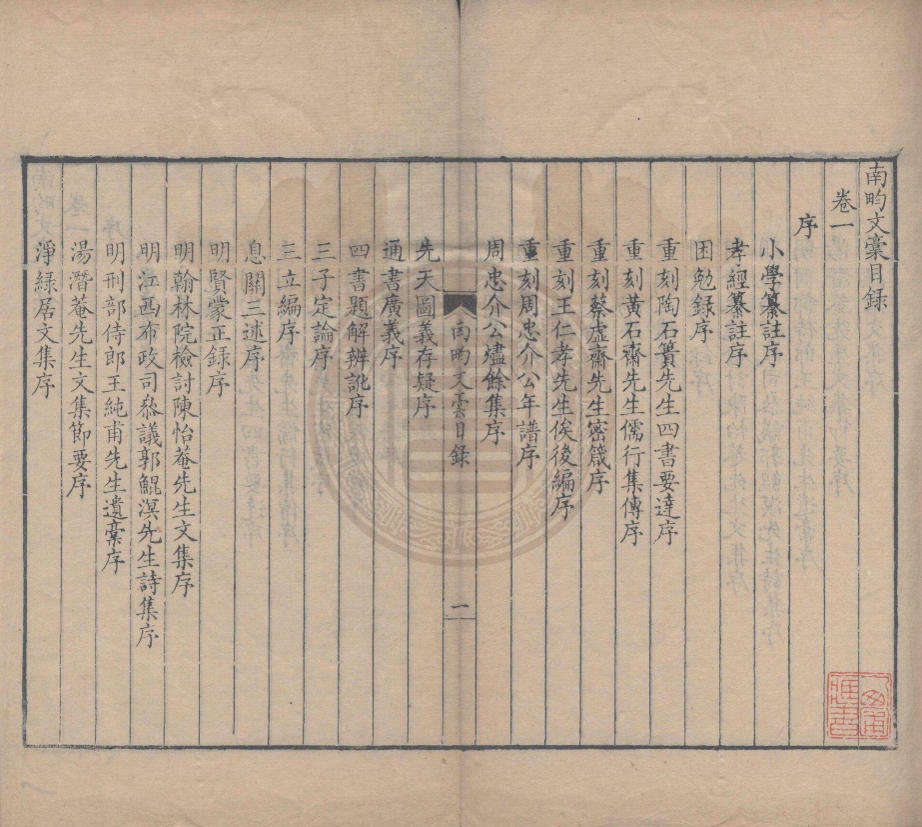 南畇文稾目録
卷一
序
小學纂註序
孝經纂註序
困勉録序
重刻陶石簣先生四書要達序
重刻黃石齋先生儒行集傳序
重刻蔡虛齋先生密箴序
重刻王仁孝先生俟後編序
重刻周忠介公年譜序
周忠介公燼餘集序
南畇文稾目録
一
先天圖義存疑序
通書廣義序
四書題解辨訛序
三子定論序
三立編序
息關三述序
明賢蒙正録序
明翰林院檢討陳怡菴先生文集序
明江西布政司叅議郭鯤溟先生詩集序
明刑部侍郎王純甫先生遺稾序
湯潛菴先生文集節要序
淨緑居文集序